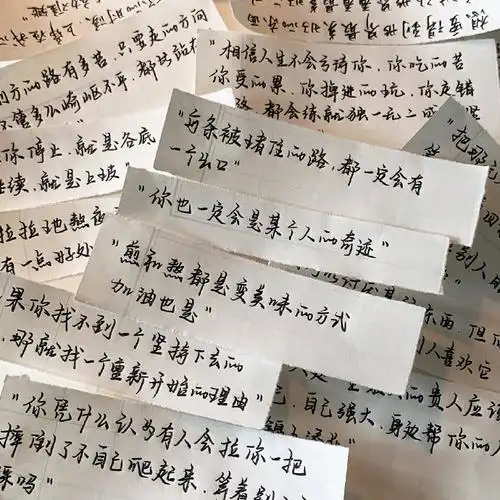 的路有多苦，只要走的方向
管多么崎岖不平，都比站在
"相信人生不会亏待你，你吃的苦
你受的累，你掉进的坑，你走错
路，都会练就独一无二
你停止，就是谷底
继续，就是上坡"
"每条被堵住的路，都一定会有
一个出口"
"把那
"你也一定会是某个人的奇迹"
有一点好处
"煎和熬都是变美味的方式
加油也是"
果你找不到一个坚持下去的
那就找一个重新开始的理由"
人喜欢它
的贵人应该
自己强大，身处
帮你的人
"你凭什么认为有人会拉你一把
摔倒了不自己爬起来，等着别
踩吗"